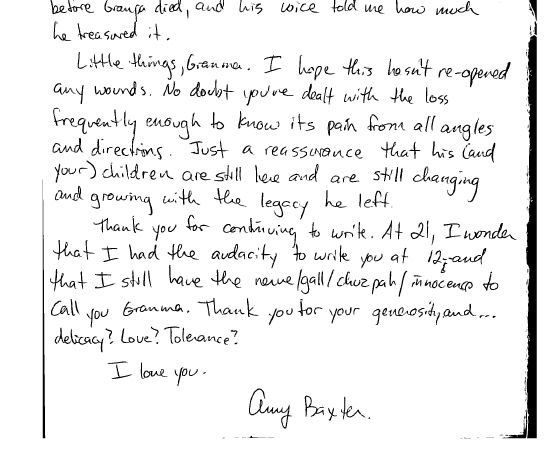 before Granpa died, and his voice told me how much
he treasured it.
Little things, Granma. I hope this hasn't re-opened
any wounds. No doubt you've dealt with the loss
frequently enough to know its pain from all angles
and directions. Just a reassurance that his (and
your) children are still here and are still changing
and growing with the legacy he left.
Thank you for continuing to write. At 21, I wonder
that I had the audacity to write you at 12 - and
that I still have the nerve/gall/chuzpah/innocence to
call you Granma. Thank you for your generosity, and...
delicacy? Love? Tolerance?
I love you.
Amy Baxter.